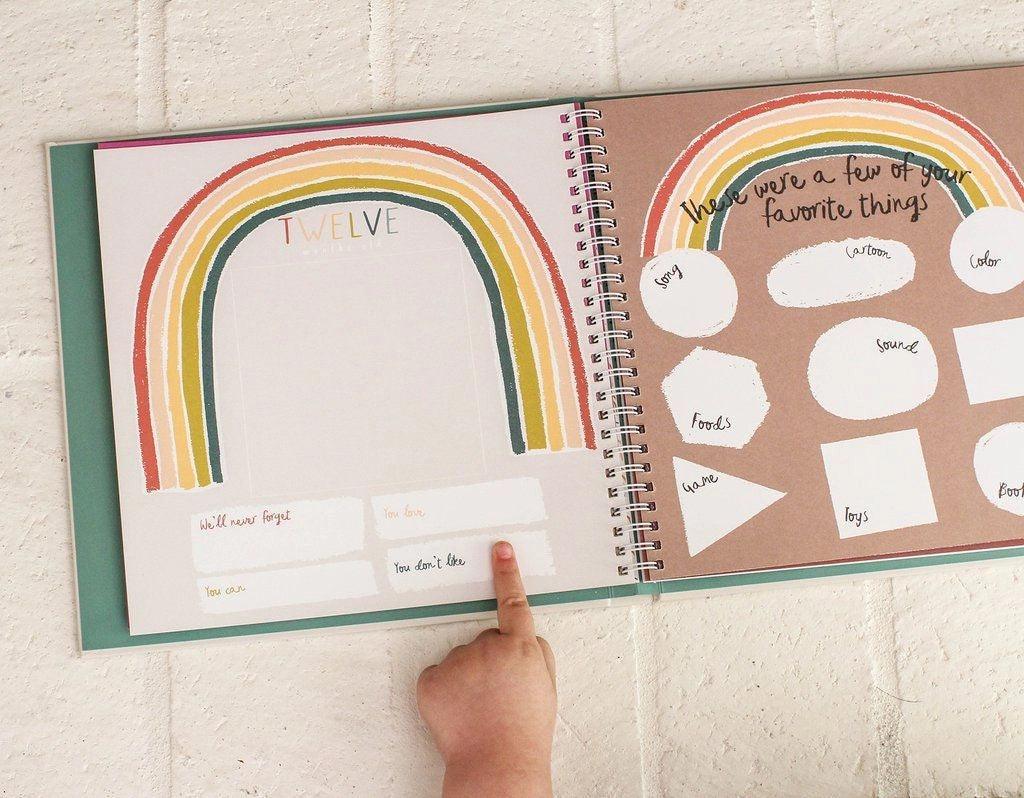 TWELVE
months old
We'll never forget
You love
You can
You don't like
These were a few of your
favorite things
Song
Cartoon
Color
Foods
Sound
Game
Toys